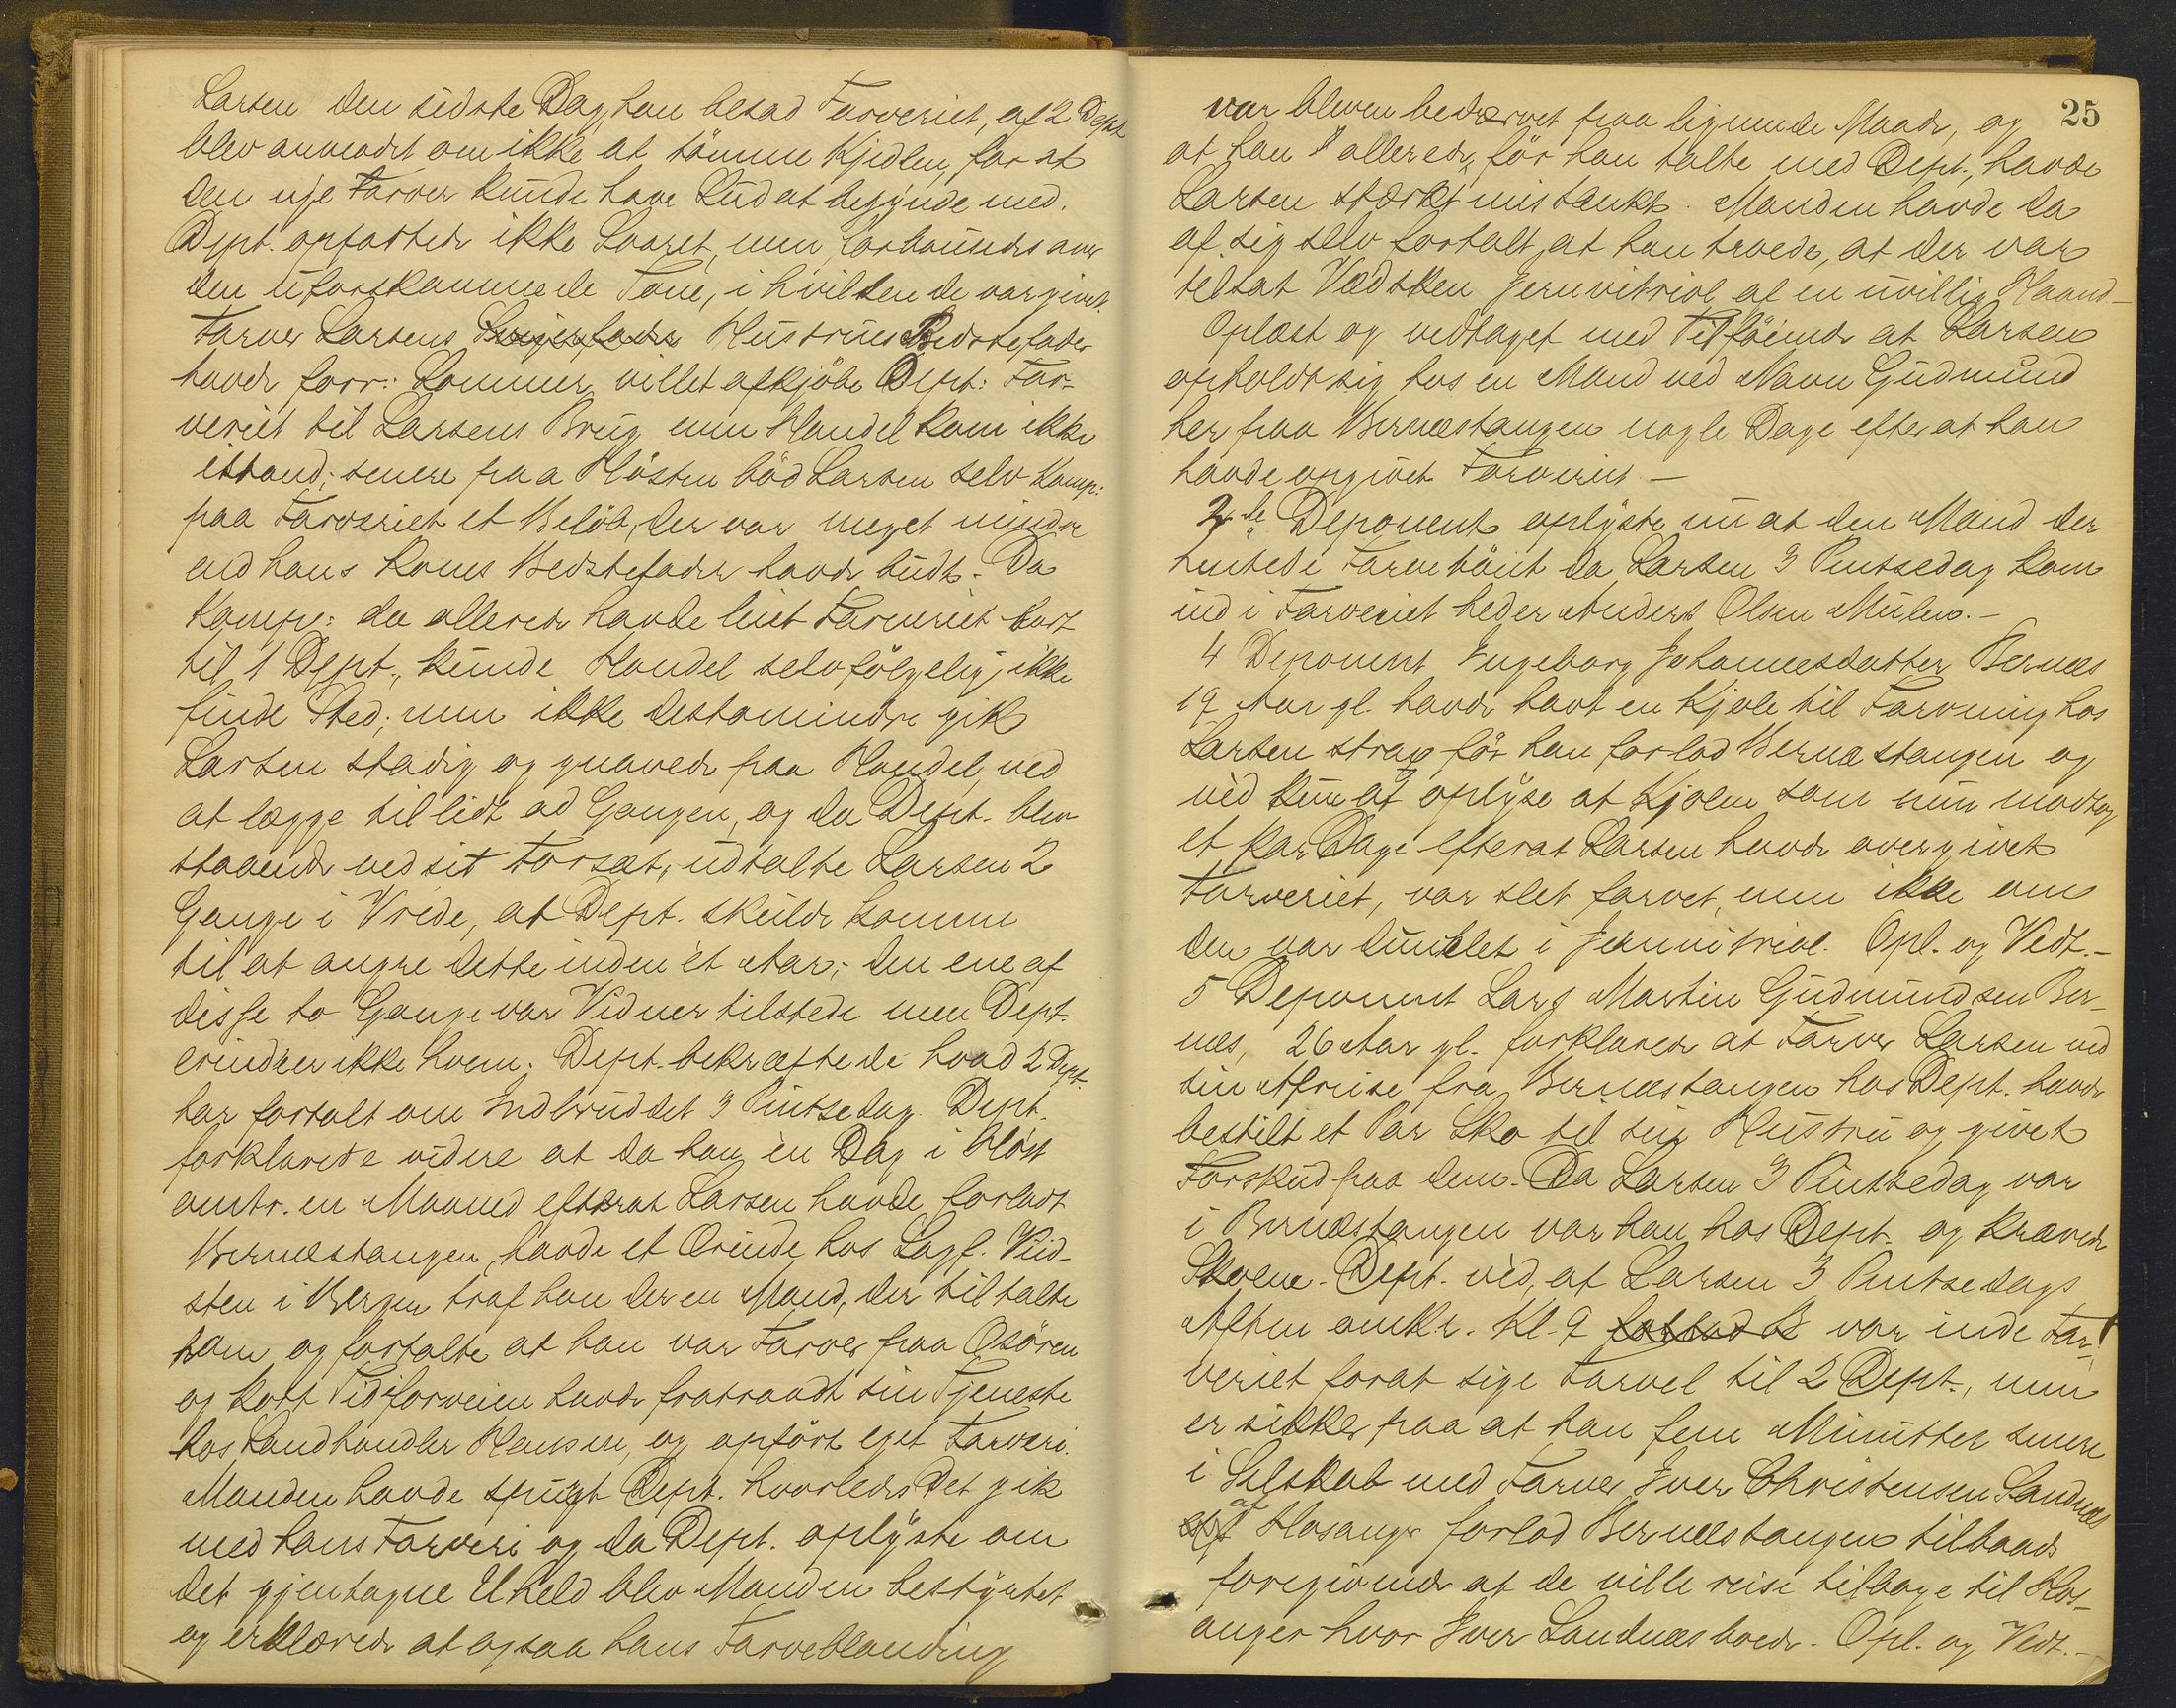 Larsen den sidste Dag, han besad Farveriet, af 2 Dept
blev anmodet om ikke at tömme Kjedlen, for at
den nye Farver kunde have Lud at begynde med.
Dept. opfattede ikke Svaret, men forbausedes over
den uforskammede Tone, i hvilken de var givet.
Farver Larsens Svigerfader Hustrues Bedstefader
havde forr: Sommer villet afkjöbe Dept: Far-
veriet til Larsens Brug men Handel kom ikke
istand; senere paa Hösten böd Larsen selv Komp:
paa Farveriet et Belöb, der var meget mindre
end hans Kones Bedstefader havde budt. Da
Komp: da allerede havde leiet Farveriet bort
til 1 Dept., kunde Handel selvfölgelig ikke
finde Sted; men ikke destomindre gik
Larsen stadig og gnavede paa Handel, ved
at lægge til lidt ad Gangen, og da Dept. blev
staaende ved sit Forsæt, udtalte Larsen 2
Gange i Vrede, at Dept. skulde komme
til at angre dette inden ét Aar; den ene af
disse to Gange var Vidner tilstede men Dept.
erindrer ikke hvem. Dept. bekræftede hvad 2 Dept.
har fortalt om Indbruddet 3 Pintsedag. Dept.
forklarede videre at da han èn Dag i Höst
omtr. en Maaned efterat Larsen havde forladt
Bernæstangen, havde et Ærinde hos Sagf. Viid-
sten i Bergen traf han der en Mand, der tiltalte
ham og fortalte at han var Farver paa Osören
og kort Tid iforveien havde fratraadt sin Tjeneste
hos Landhandler Hansen, og opfört eget Farveri.
Manden havde spurgt Dept. hvorledes det gik
med hans Farveri og da Dept. oplyste om
det gjentagne Uheld blev Manden bestyrtet
og erklærede at ogsaa hans Farveblanding
25
var bleven bedærvet paa lignende Maade, og
at han allerede, för han talte med Dept., havde
Larsen stærkt mistænkt. Manden havde da
af sig selv fortalt, at han troede, at der var
tilsat Vædsken Jernvitriol af en uvillig Haand.—
Oplæst og vedtaget med Tilföiende at Larsen
opholdt sig hos en Mand ved Navn Gudmund
her paa Bernæstangen nogle Dage efter at han
havde opgivet Farveriet.—
2de Deponent oplyste nu at den Mand der
hentede Farvetöiet da Larsen 3 Pintsedag kom
ind i Farveriet heder Anders Olsen Mulen.—
4 Deponent Ingeborg Johannesdatter Bernæs
19 Aar gl. havde havt en Kjole til Farvning hos
Larsen strax för han forlod Bernæstangen og
véd kun at oplyse at Kjolen som hun modtog
et Par Dage efterat Larsen havde overgivet
Farveriet, var slet farvet, men ikke om
den var dunklet i Jernvitriol. Opl. og Vedt.—
5 Deponent Lars Martin Gudmundsen Ber-
næs, 26 Aar gl. forklarede at Farver Larsen ved
sin Afreise fra Bernæstangen hos Dept. havde
bestilt et Par Sko til sin Hustru og givet
Forskud paa dem. Da Larsen 3 Pintsedag var
i Bernæstangen var han hos Dept. og krævede
Skoene. Dept. véd, at Larsen 3 Pintsedags
Aften omkr. Kl. 9 forlod B var inde Far-
veriet forat sige Farvel til 2 Dept., men
er sikker paa at han fem Minutter senere
i Selskab med Farver Iver Christensen Sandnæs
af Hosanger forlod Bernæstangen tilbaads
foregivende at de vilde reise tilbage til Hos-
anger hvor Iver Sandnæs boede. Opl. og Vedt.—